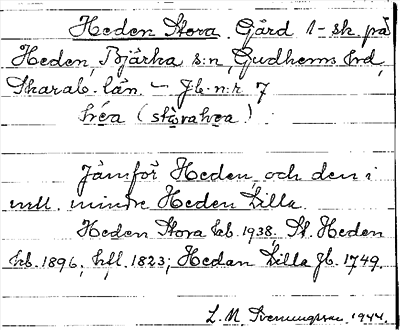 Heden Stora. Gård 1-sk. på
Heden, Bjärka s:n, Gudhems hrd,
Skarab. län. - Jb. n:r 7
héa (stórahea).
Jämför Heden och den i
mtl. mindre Heden Lilla.
Heden Stora kb. 1938, St. Heden
kb. 1896, hfl. 1823; Hedan Lilla Jb. 1749.
L. M. Svenungsson 1944.